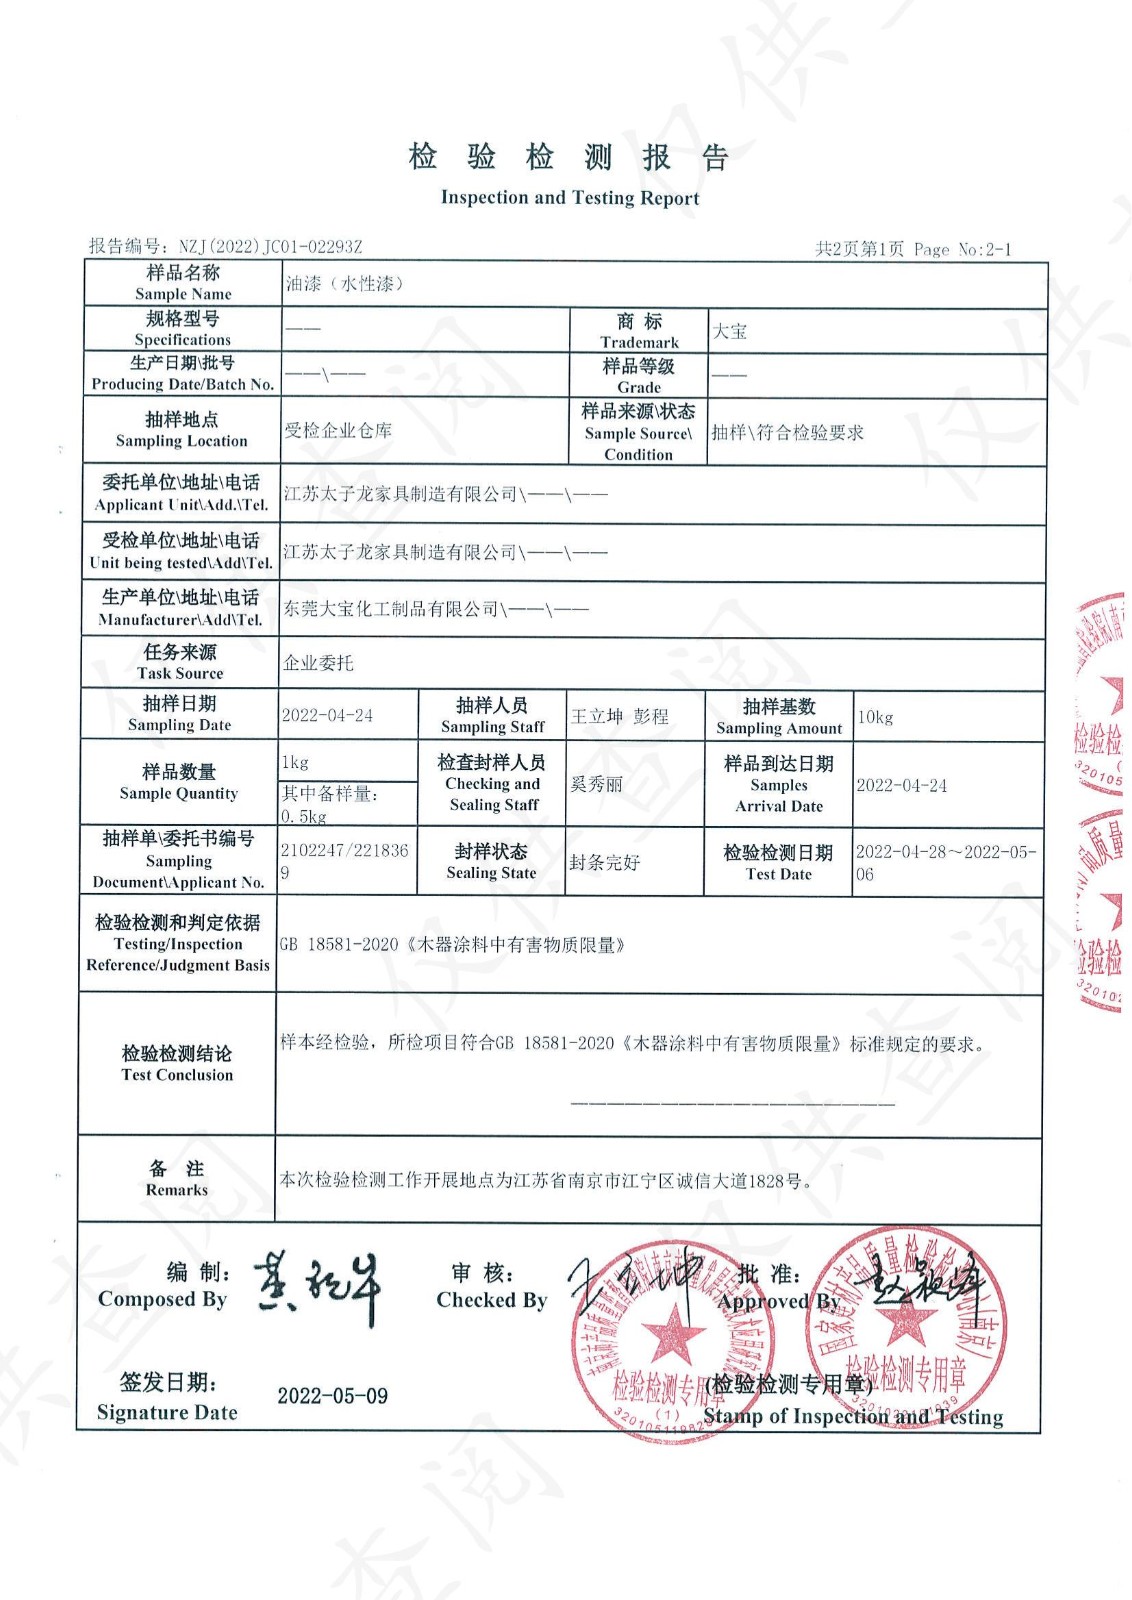 检 验 检 测 报 告
Inspection and Testing Report
报告编号: NZJ(2022)JC01-02293Z
共2页第1页 Page No:2-1
样品名称
Sample Name
油漆（水性漆）
规格型号
Specifications
——
商 标
Trademark
大宝
生产日期\批号
Producing Date/Batch No.
——\——
样品等级
Grade
——
抽样地点
Sampling Location
受检企业仓库
样品来源\状态
Sample Source\
Condition
抽样\符合检验要求
委托单位\地址\电话
Applicant Unit\Add.\Tel.
江苏太子龙家具制造有限公司\——\——
受检单位\地址\电话
Unit being tested\Add\Tel.
江苏太子龙家具制造有限公司\——\——
生产单位\地址\电话
Manufacturer\Add\Tel.
东莞大宝化工制品有限公司\——\——
任务来源
Task Source
企业委托
抽样日期
Sampling Date
2022-04-24
抽样人员
Sampling Staff
王立坤 彭程
抽样基数
Sampling Amount
10kg
样品数量
Sample Quantity
1kg
其中备样量:
0.5kg
检查封样人员
Checking and
Sealing Staff
奚秀丽
样品到达日期
Samples
Arrival Date
2022-04-24
抽样单\委托书编号
Sampling
Document\Applicant No.
2102247/221836
9
封样状态
Sealing State
封条完好
检验检测日期
Test Date
2022-04-28～2022-05-
06
检验检测和判定依据
Testing/Inspection
Reference/Judgment Basis
GB 18581-2020《木器涂料中有害物质限量》
检验检测结论
Test Conclusion
样本经检验，所检项目符合GB 18581-2020《木器涂料中有害物质限量》标准规定的要求。
——————————————————
备 注
Remarks
本次检验检测工作开展地点为江苏省南京市江宁区诚信大道1828号。
编 制:
Composed By
审 核:
Checked By
王立坤
批 准:
Approved By
签发日期:
Signature Date
2022-05-09
(检验检测专用章)
Stamp of Inspection and Testing
检验检测专用章
(1)
检验检测专用章
仅供查阅